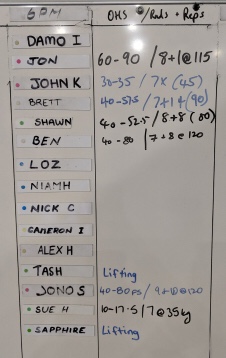 6PM OHS / Rnds + Reps
DAMO I
JON 60-90 / 8+1@115
JOHN K 30-35 / 7x (45)
BRETT 40-57.5 / 7+14 (90)
SHAWN 40-52.5 / 8+8 (80)
BEN 40-80 / 7+8@120
LOZ
NIAMH
NICK C
CAMERON I
ALEX H
TASH Lifting
JONO S 40-80 / 9+@120
SUE H 10-17.5 / 7@35kg
SAPPHIRE Lifting